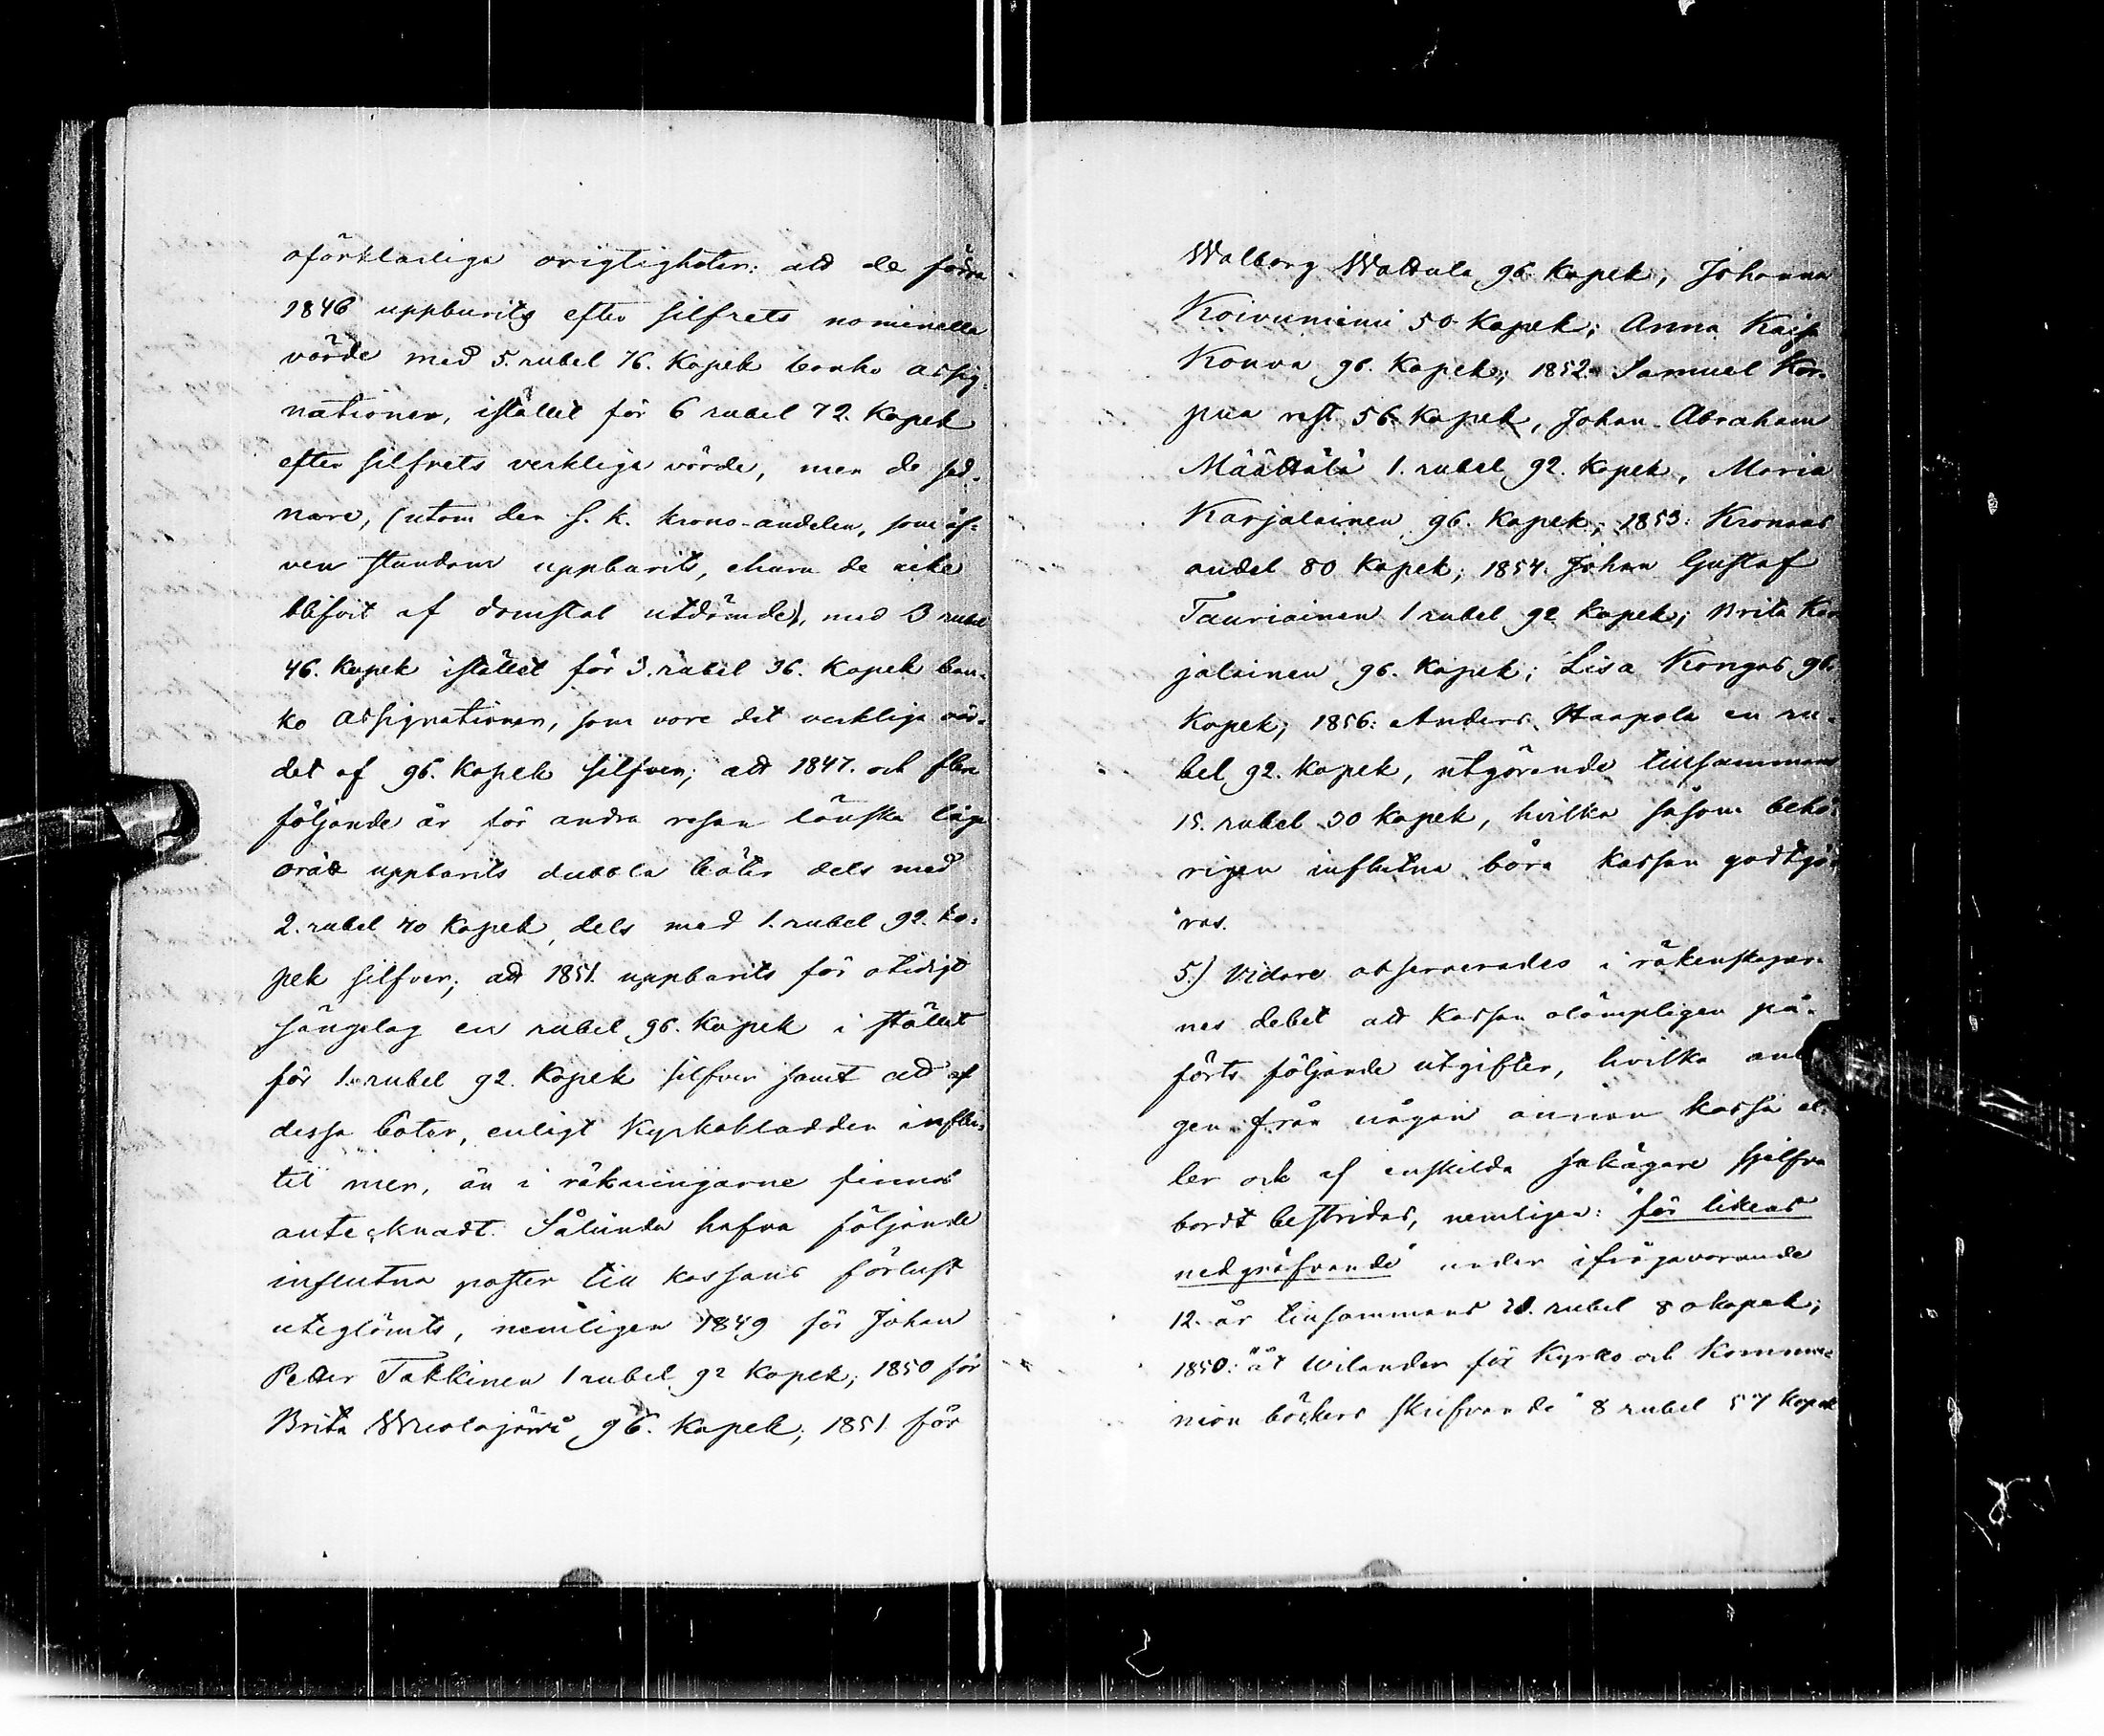 oförklarliga origtigheter: att de förra
1846 uppburits efter silfrets nominella
värde med 5. rubel 76. Kopek banko assig-
nationer, istället för 6 rubel 72. Kopek
efter silfrets verkliga värde, men de sed-
nare, (utom den s. k. krono-andelen, som äf-
ven stundom uppburits, ehuru de icke
blifvit af domstol utdömde), med 3 rubel
46. Kopek istället för 3. rubel 36. Kopek ban-
ko assignationer, som vore det verkliga vär-
det af 96. Kopek silfver; att 1847. och flere
följande år för andra resan lönska läge
oråd uppburits dubbla böter dels med
2. rubel 70 Kopek, dels med 1. rubel 92. ko-
pek silfver; att 1851. uppburits för otidigt
sängelag en rubel 96. Kopek i stället
för 1. rubel 92. Kopek silfver samt att af
dessa böter, enligt Kyrkokladden influ-
tit mer, än i räkningarne finnes
antecknadt. Sålunda hafva följande
influtna poster till kassans förlust
uteglömts, nemligen 1849 för Johan
Petter Takkinen 1 rubel 92 Kopek; 1850 för
Brita Wuolajärvi 96. Kopek; 1851 för
Walborg Wattula 96 Kopek; Johanna
Koivuniemi 50 Kopek; Anna Kaisa
Kouva 96. Kopek; 1852. Samuel Kor-
pua rest 56 Kopek, Johan Abraham
Määttälä 1. rubel 92. Kopek, Maria
Karjalainen 96. Kopek; 1853: Kronans
andel 80 Kopek; 1854. Johan Gustaf
Tauriainen 1 rubel 92 Kopek; Brita Kar
jalainen 96. Kopek; Lisa Kongas 96.
Kopek; 1856: Anders Haapola en ru-
bel 92. Kopek, utgörande tillsammans
15. rubel 30 Kopek, hvilka såsom behö-
rigen influtna böra kassan godtgö-
ras.
5.) Vidare observerades i räkenskaper-
nes debet att Kassan olämpligen på-
förts följande utgifter, hvilka
gen från någon annan kassa el-
ler ock af enskilda sakägare sjelfva
bordt bestridas, nemligen: "för likens
nedgräfvande" under ifrågavarande
12. år tillsammans 21. rubel 80 kopek;
1850: "åt Wilander för Kyrko och Kommu-
nion böckers skrifvande" 8 rubel 57 Kopek